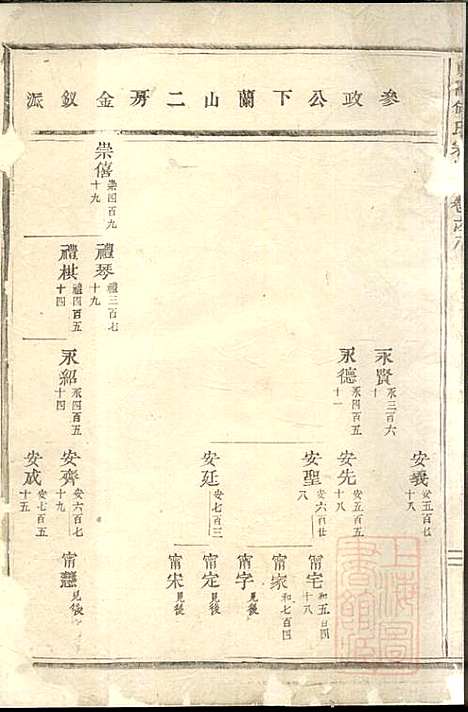 何氏
參政公下蘭山二房金釵派
崇僖 崇四百九十九
禮琴 禮三百七十九
禮棋 禮四百五十四
永賢 永三百六十
永德 永四百五十一
永紹 永四百五十四
安義 安五百廿八
安先 安五百五十八
安聖 安六百廿八
安延 安七百三
安齊 安六百七十九
安成 安七百五十五
甯宅 和五百四十八
甯家 和七百四
甯字 見後
甯定 見後
甯宋 見後
甯慧 見後
上海圖書館藏